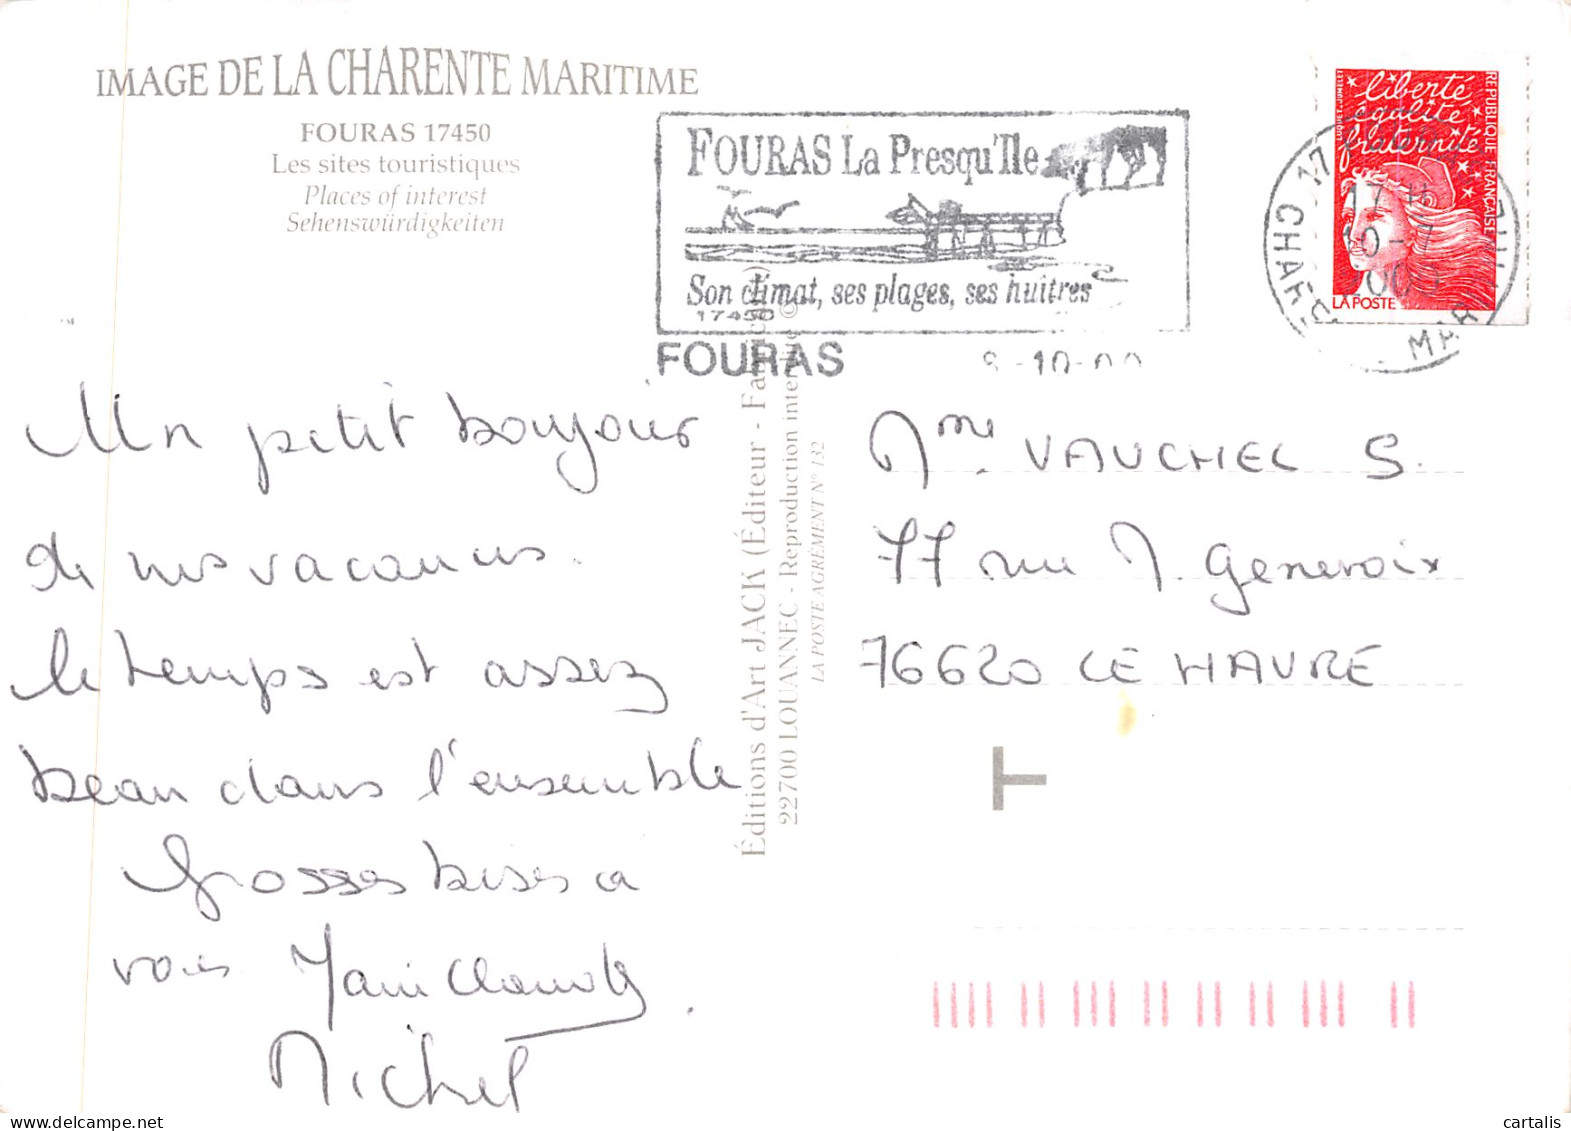 IMAGE DE LA CHARENTE MARITIME
FOURAS 17450
Les sites touristiques
Places of interest
Sehenswürdigkeiten
FOURAS La Presqu'Ile
Son climat, ses plages, ses huîtres
17450
FOURAS
8-10-00
liberté
égalité
fraternité
REPUBLIQUE FRANÇAISE
LA POSTE
17 H
CHAR. MAR
Un petit bonjour
de nos vacances.
le temps est assez
beau dans l'ensemble
Grosses bises à
vous
Michel
Éditions d'Art JACK (Éditeur -
22700 LOUANNEC - Reproduction
LA POSTE AGRÉMENT N° 132
Mme VAUCHEL S.
77 rue M. Genevoix
76620 LE HAVRE
cartalis